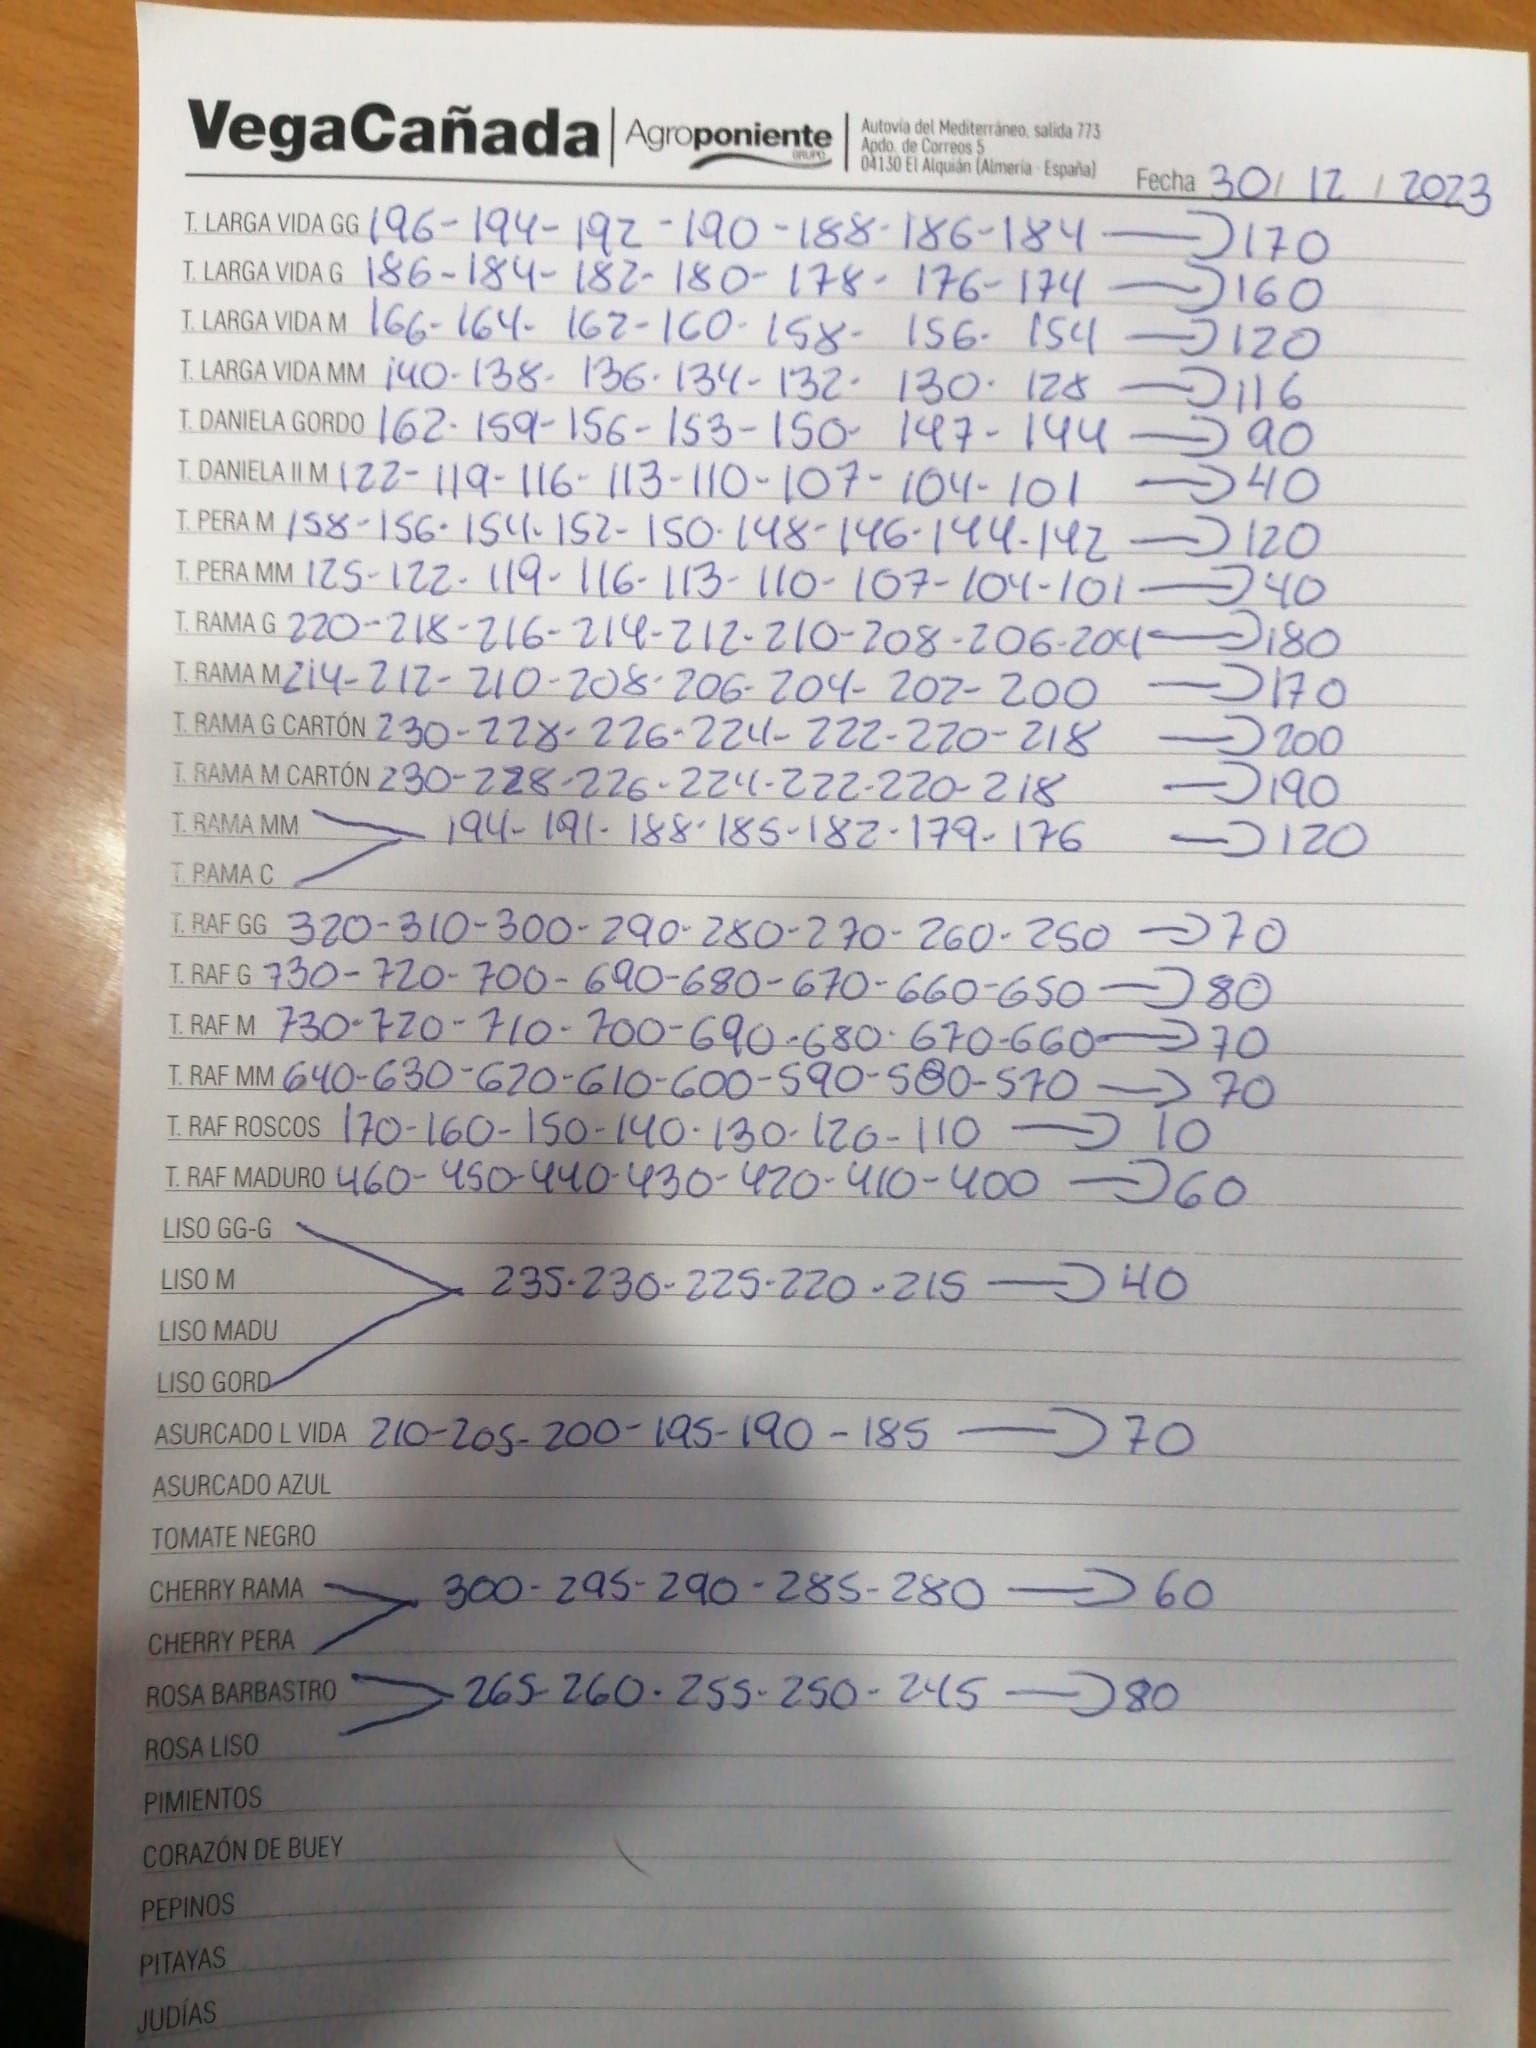 VegaCañada Agroponiente GRUPO Autovía del Mediterráneo, salida 773
Apdo. de Correos 5
04130 El Alquián (Almería - España)
Fecha 30/12/2023
T. LARGA VIDA GG 196-194-192-190-188-186-184 170
T. LARGA VIDA G 186-184-182-180-178-176-174 160
T. LARGA VIDA M 166-164-162-160-158-156-154 120
T. LARGA VIDA MM 140-138-136-134-132-130-128 116
T. DANIELA GORDO 162-159-156-153-150-147-144 90
T. DANIELA II M 122-119-116-113-110-107-104-101 40
T. PERA M 158-156-154-152-150-148-146-144-142 120
T. PERA MM 125-122-119-116-113-110-107-104-101 40
T. RAMA G 220-218-216-214-212-210-208-206-204 180
T. RAMA M 214-212-210-208-206-204-202-200 170
T. RAMA G CARTÓN 230-228-226-224-222-220-218 200
T. RAMA M CARTÓN 230-228-226-224-222-220-218 190
T. RAMA MM 194-191-188-185-182-179-176 120
T. RAMA C
T. RAF GG 320-310-300-290-280-270-260-250 70
T. RAF G 730-720-700-690-680-670-660-650 80
T. RAF M 730-720-710-700-690-680-670-660 70
T. RAF MM 640-630-620-610-600-590-580-570 70
T. RAF ROSCOS 170-160-150-140-130-120-110 10
T. RAF MADURO 460-450-440-430-420-410-400 60
LISO GG-G
LISO M 235-230-225-220-215 40
LISO MADU
LISO GORD
ASURCADO L VIDA 210-205-200-195-190-185 70
ASURCADO AZUL
TOMATE NEGRO
CHERRY RAMA 300-295-290-285-280 60
CHERRY PERA
ROSA BARBASTRO 265-260-255-250-245 80
ROSA LISO
PIMIENTOS
CORAZÓN DE BUEY
PEPINOS
PITAYAS
JUDÍAS